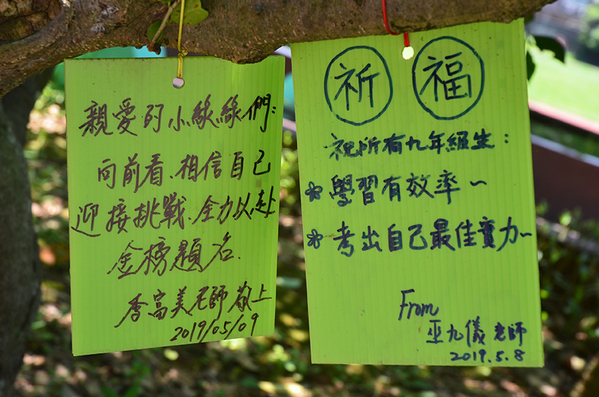 親愛的小綠綠們:
向前看.相信自己
迎接挑戰.全力以赴
金榜題名.
李富美老師 敬上
2019/05/09
祈 福
祝所有九年級生:
※學習有效率~
※考出自己最佳實力~
From
巫九儀老師
2019.5.8